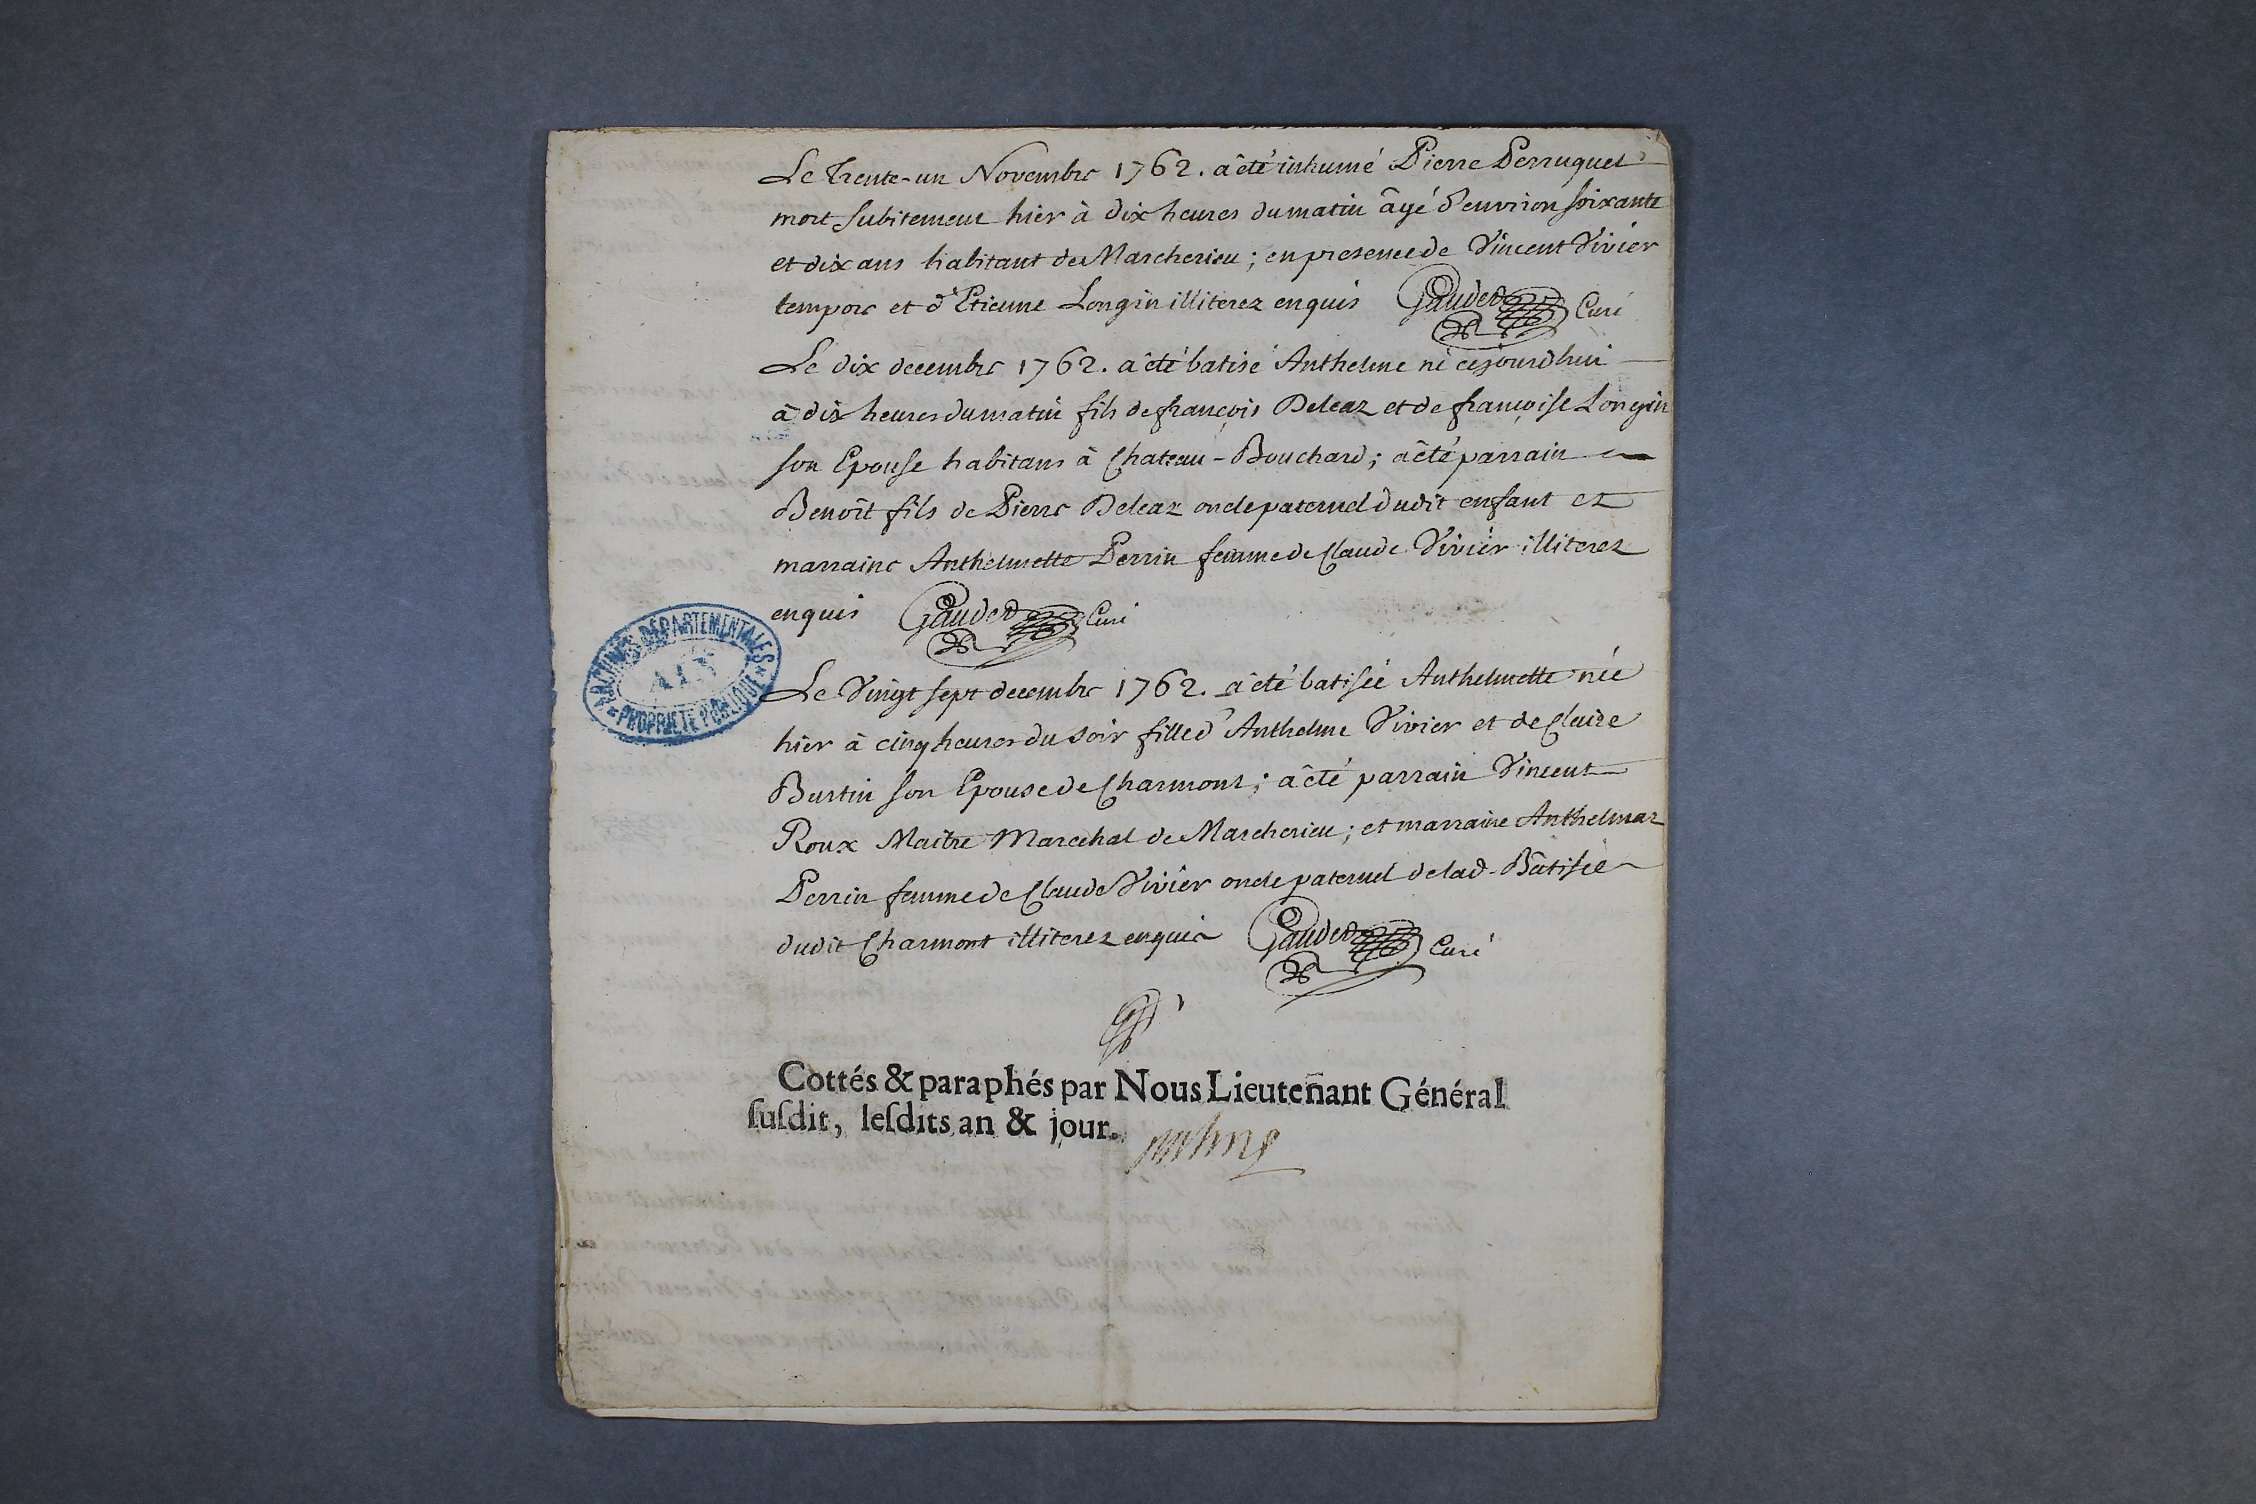 Le Trente-un Novembre 1762. a êté inhumé Pierre Perruquet
mort subitement hier à dix heures du matin âgé d'environ soixante
et dix ans habitant de Marcherieu; en presence de Vincent Vivier
tempore et d'Etienne Longin illiterez enquis Gaudet Curé
Le dix decembre 1762. a êté batisé Anthelme né cejourdhui
à dix heures du matin fils de françois Deleaz et de françoise Longin
son Epouse habitans à Chateau-Bouchard; a êté parrain
Benoît fils de Pierre Deleaz oncle paternel dudit enfant et
marraine Anthelmette Perrin femme de Claude Vivier illiterez
enquis Gaudet Curé
ARCHIVES DÉPARTEMENTALES
AIN
PROPRIÉTÉ PUBLIQUE
Le Vingt sept decembre 1762. a êté batisée Anthelmette née
hier à cinq heures du soir fille d'Anthelme Vivier et de Claire
Burtin son Epouse de Charmont; a êté parrain Vincent
Roux Maître Marechal de Marcherieu; et marraine Anthelmaz
Perrin femme de Claude Vivier oncle paternel de lad. Bâtisée
dudit Charmont illiterez enquis Gaudet Curé
Cottés & paraphés par Nous Lieuteñant Général
susdit, lesdits an & jour.